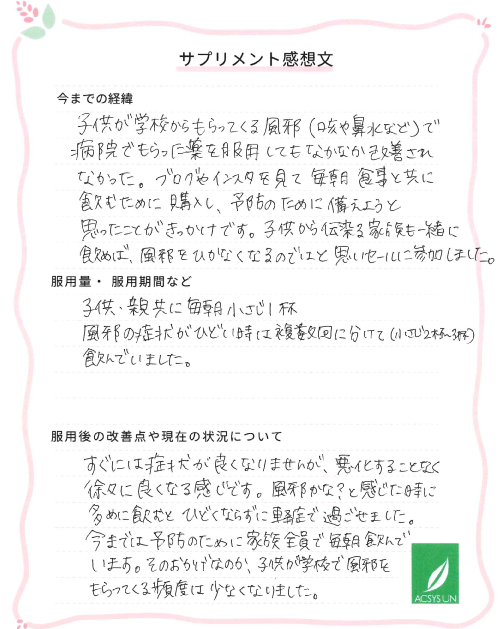 サプリメント感想文
今までの経緯
子供が学校からもらってくる風邪(咳や鼻水など)で
病院でもらった薬を服用してもなかなか改善され
なかった。ブログやインスタを見て毎朝食事と共に
飲むために購入し、予防のために備えようと
思ったことがきっかけです。子供から伝染る家族も一緒に
飲めば、風邪をひかなくなるのではと思いセールに参加しました。
服用量・服用期間など
子供・親共に毎朝小さじ1杯
風邪の症状がひどい時は複数回に分けて(小さじ2杯〜3杯)
飲んでいました。
服用後の改善点や現在の状況について
すぐには症状が良くなりませんが、悪化することなく
徐々に良くなる感じです。風邪かな?と感じた時に
多めに飲むとひどくならずに軽症で過ごせました。
今までは予防のために家族全員で毎朝飲んで
います。そのおかげなのか、子供が学校で風邪を
もらってくる頻度は少なくなりました。
ACSYS UN